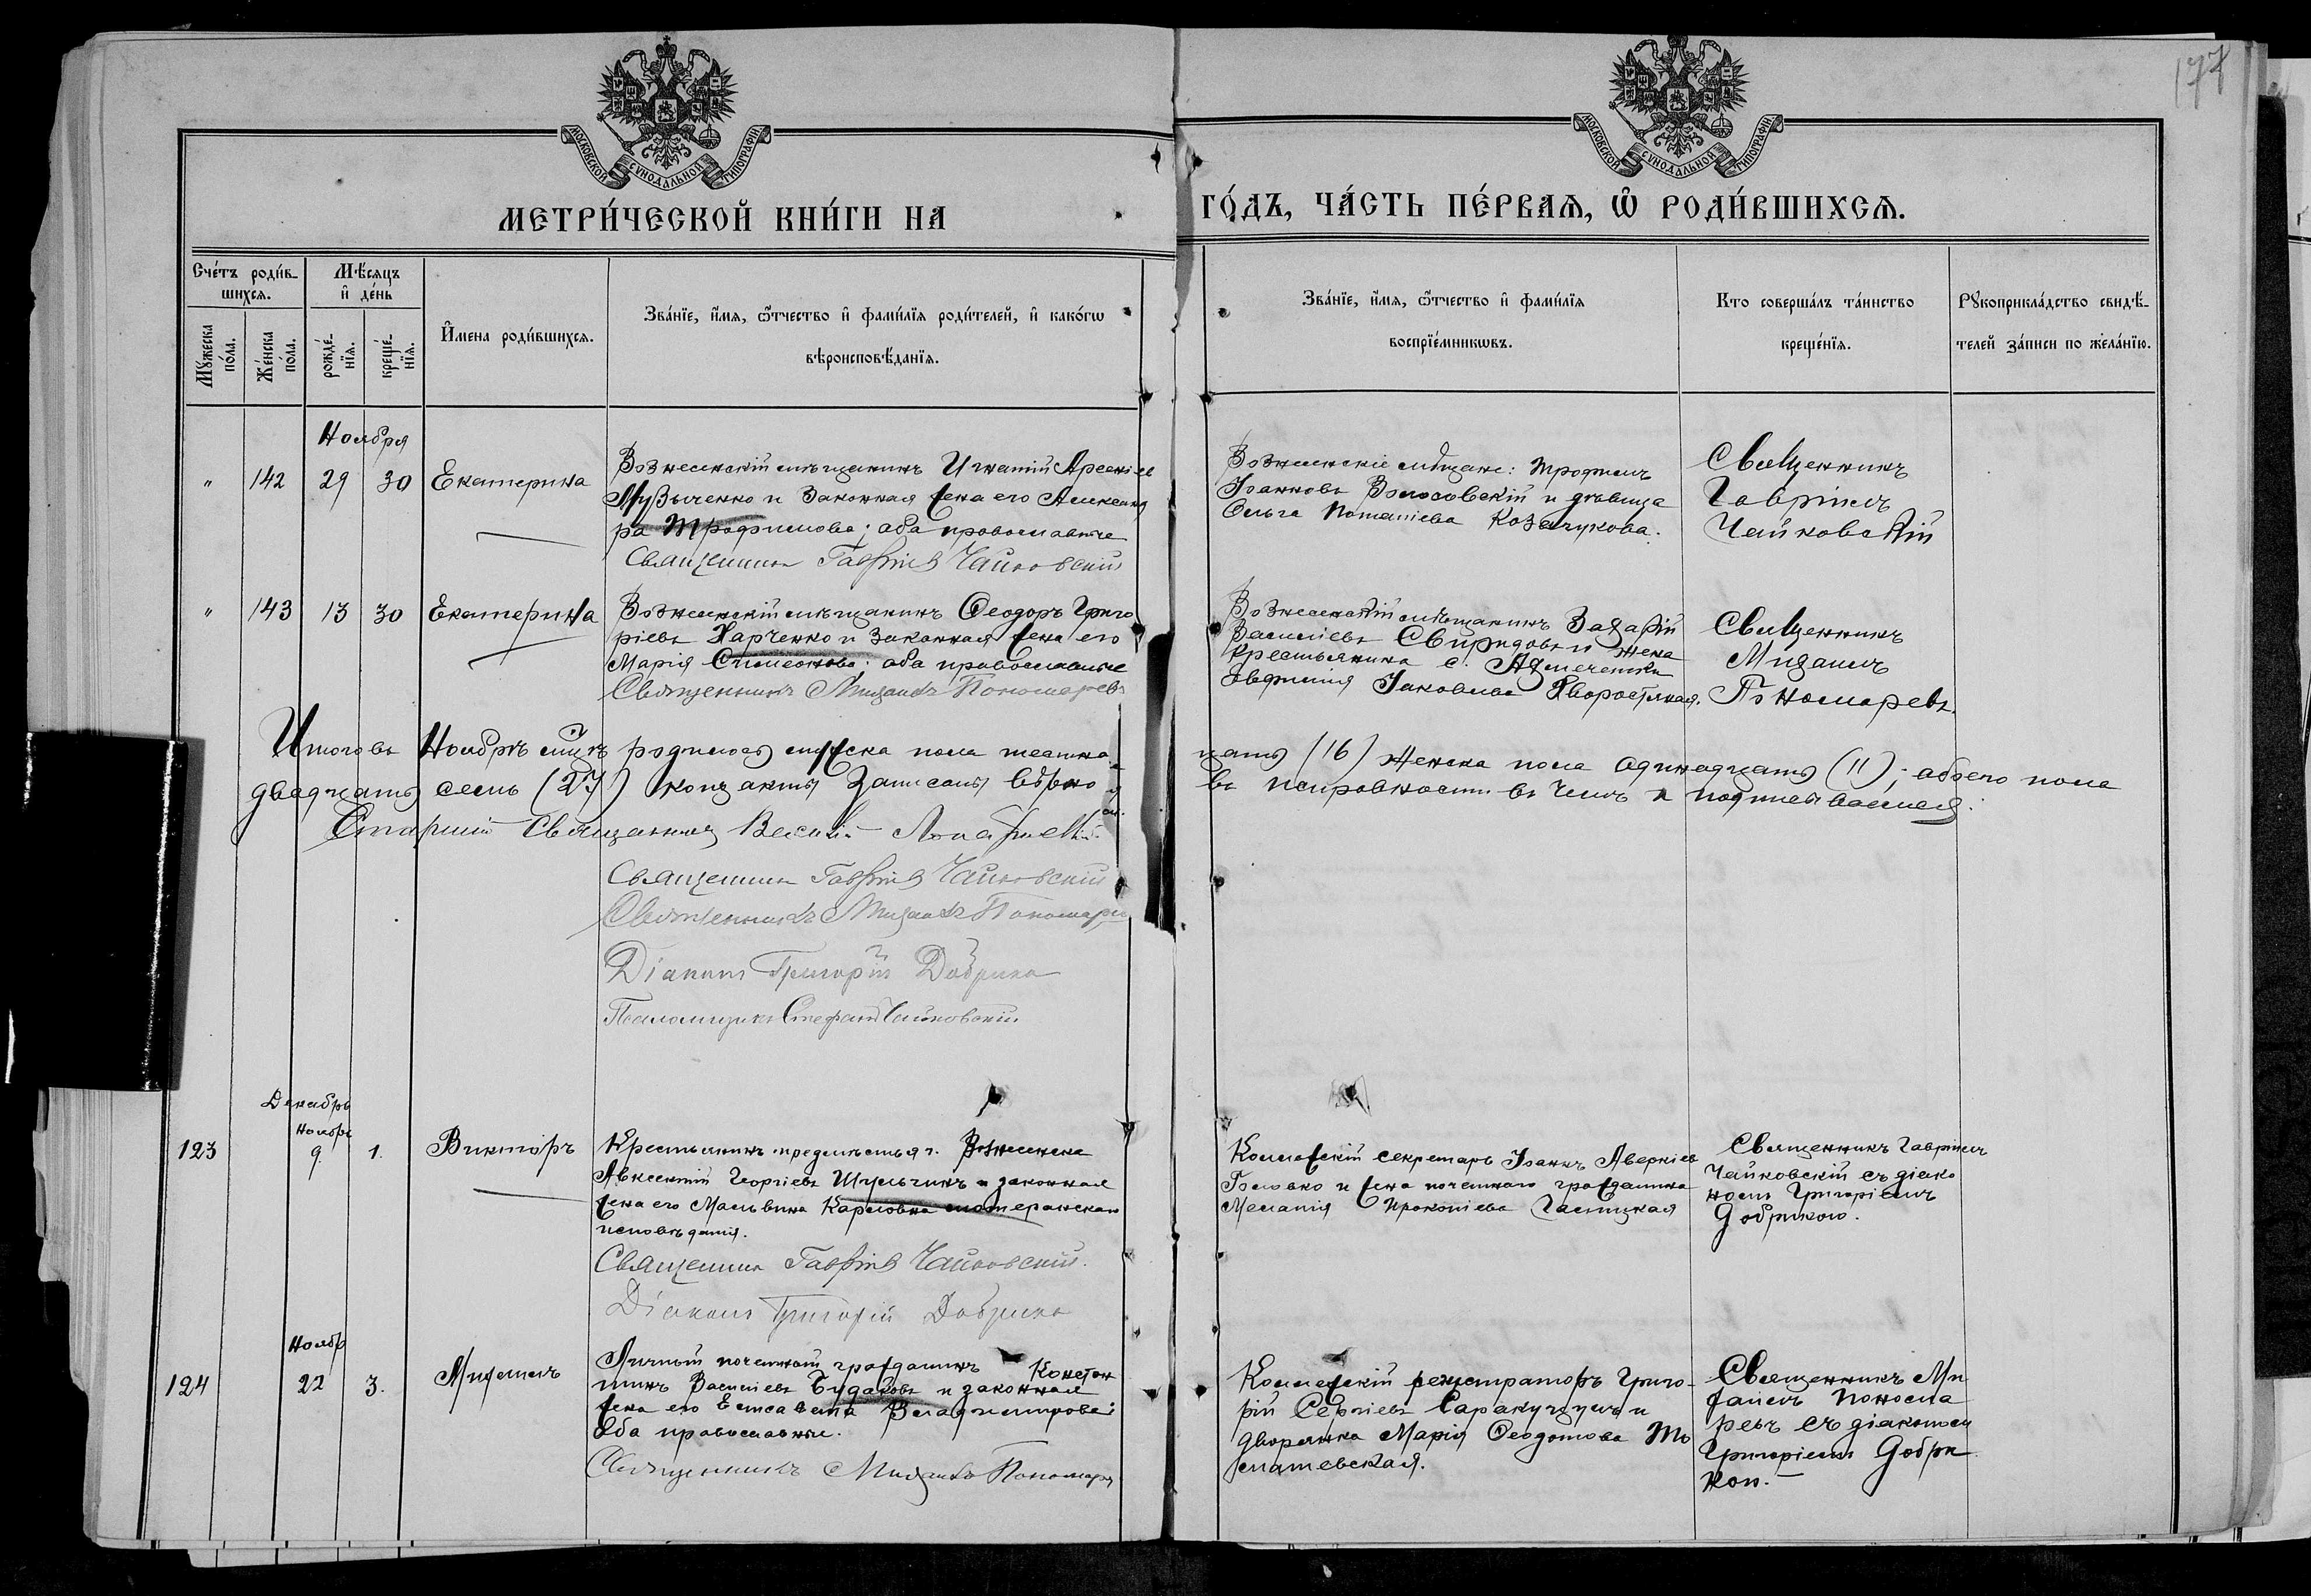 177
МОСКОВСКОЙ СѴНОДАЛЬНОЙ ТИПОГРАФІИ
МОСКОВСКОЙ СѴНОДАЛЬНОЙ ТИПОГРАФІИ
МЕТРИ́ЧЕСКОЙ КНИ́ГИ НА
ГО́ДЪ, ЧА́СТЬ ПЕ́РВАѦ, Ѡ҆ РОДИ́ВШИХСѦ.
Сче́тъ роди́в-
шихсѧ.
Мꙋ́жеска по́ла.
Же́нска по́ла.
Мѣ́сѧцъ
и҆ де́нь
рожде́-
нїѧ.
креще́-
нїѧ.
И҆мена роди́вшихсѧ.
Зва́нїе, и҆́мѧ, ѻ҆́тчество и҆ фами́лїѧ роди́телей, и҆ како́гѡ
вѣроисповѣ́данїѧ.
Зва́нїе, и҆́мѧ, ѻ҆́тчество и҆ фами́лїѧ
воспрїе́мникѡвъ.
Кто соверша́лъ та́инство
креще́нїѧ.
Рꙋкоприкла́дство свидѣ́-
телей за́писи по жела́нїю.
Ноября
" 142 29 30 Екатерина
Вознесенскій мѣщанинъ Игнатій Арсеніев
Музыченко и законная жена его Александ
ра Трофимова; оба православные
Священникъ Гавріилъ Чайковскій
Вознесенскіе мѣщане: Трофимъ
Іоанновъ Волосовскій и дѣвица
Ольга Потапіева Козачукова.
Священникъ
Гавріилъ
Чайковскій
" 143 13 30 Екатерина
Вознесенскій мѣщанинъ Ѳеодоръ Григо
ріевъ Харченко и законная жена его
Марія Симеонова; оба православные
Священникъ Михаилъ Пономаревъ
Вознесенскій мѣщанинъ Захарій
Василіевъ Свиридовъ и жена
крестьянина с. Акмечетки
Евфимія Іаковлева Хворостяная.
Священникъ
Михаилъ
Пономаревъ.
Итого въ Ноябрѣ мцѣ родилось мужеска пола шестна
цать (16) женска пола одинадцать (11); обоего пола
двадцать семь (27) кои акты записаны вѣрно и
въ исправности въ чемъ и подписываемся:
Старшій Священникъ Василій
Священникъ Гавріилъ Чайковскій
Священникъ Михаилъ Пономаревъ
Діаконъ Григорій Добрико
Псаломщикъ Стефанъ Чайковскій
Декабрь
Ноябрь
123 9. 1. Викторъ
Крестьянинъ предмѣстья г. Вознесенска
Авксентій Георгіевъ Шульгинъ и законная
жена его Мальвина Карловна лютеранскаго
исповѣданія.
Священникъ Гавріилъ Чайковскій.
Діаконъ Григорій Добрико
Коллежскій секретарь Іоаннъ Аверкіев
Головко и жена почетнаго гражданина
Меланія Прокопіева
Священникъ Гавріилъ
Чайковскій съ діако
номъ Григоріемъ
Добрикою.
Ноябр
124 22 3. Михаилъ
Личный почетный гражданинъ Констан
тинъ Василіевъ Будаковъ и законная
жена его Елисавета Владимирова;
оба православные.
Священникъ Михаилъ Пономаревъ
Коллежскій регистраторъ Григо-
рій Сергіевъ и
дворянка Марія Ѳеодотова То
машевская.
Священникъ Ми
хаилъ Понома
ревъ съ діакономъ
Григоріемъ Добри
кою.